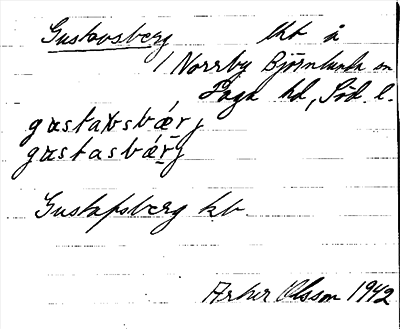 Gustavsberg lht å
/ Norrby Björnlunda sn
Daga hd, Söd. l.
gustavsbærj
gustasbærj
Gustafsberg kb
Asker Olsson 1942